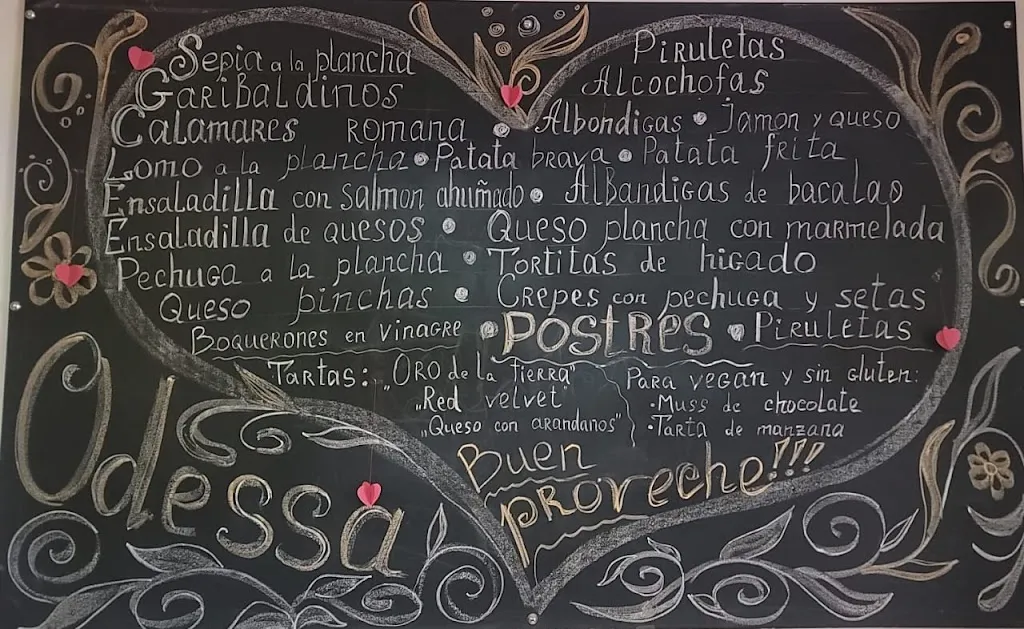 Sepia a la plancha
Piruletas
Garibaldinos
Alcochofas
Calamares romana • Albondigas • Jamon y queso
Lomo a la plancha • Patata brava • Patata frita
Ensaladilla con salmon ahuñado • Albandigas de bacalao
Ensaladilla de quesos • Queso plancha con marmelada
Pechuga a la plancha • Tortitas de higado
Queso pinchas • Crepes con pechuga y setas
Boquerones en vinagre • Postres • Piruletas
Tartas: „Oro de la tierra"
„Red velvet"
„Queso con arandanos"
Para vegan y sin gluten:
• Muss de chocolate
• Tarta de manzana
Buen
proveche!!!
Odessa